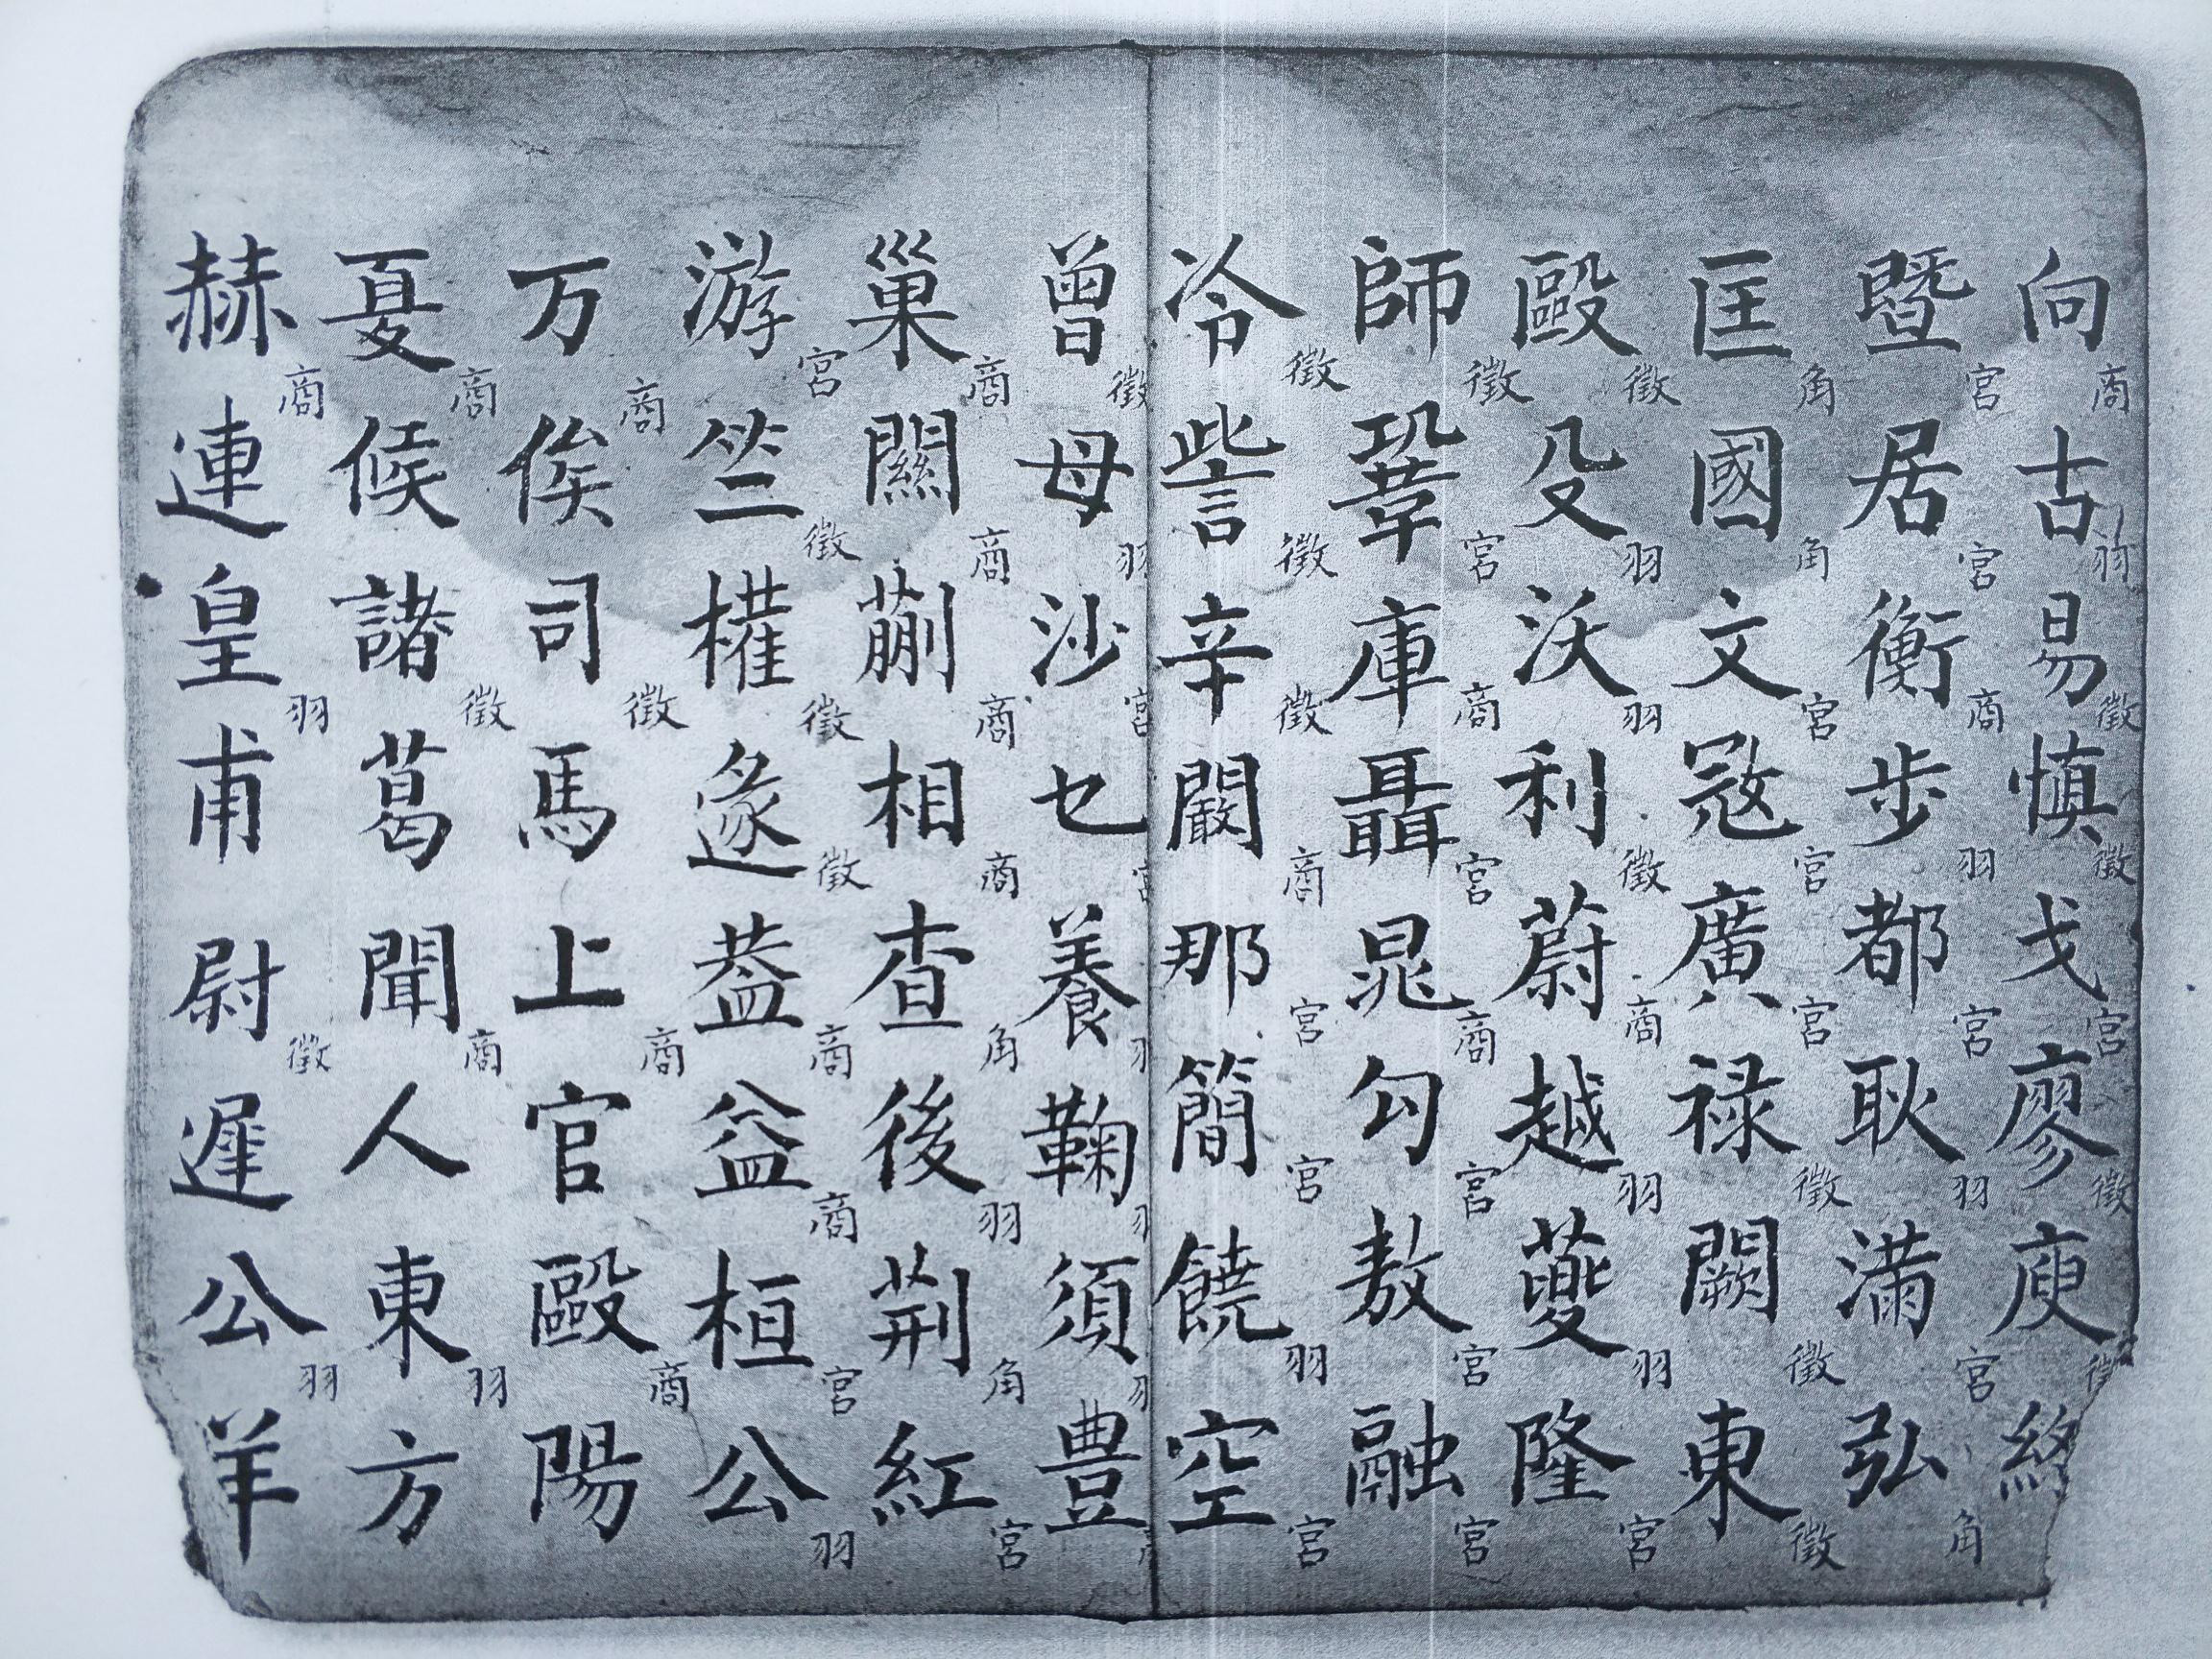 向商古羽易徵慎徵戈宮廖徵庾徵終
暨宮居宮衡商步羽都宮耿羽滿宮弘角
匡角國角文宮寇宮廣宮禄徵闕徵東徵
毆徵殳羽沃羽利徵蔚商越羽夔羽隆宮
師徵鞏宮庫商聶宮晁商勾宮敖宮融宮
冷徵訾徵辛徵闞商那宮簡宮饒羽空宮
曾徵母羽沙宮乜宮養羽鞠羽須羽豊
巢商關商蒯商相商查角後羽荆角紅宮
游宮竺徵權徵逯徵葢商益商桓宮公羽
万商俟司徵馬上商官毆商陽
夏商候諸徵葛聞商人東羽方
赫商連皇羽甫尉徵遲公羽羊